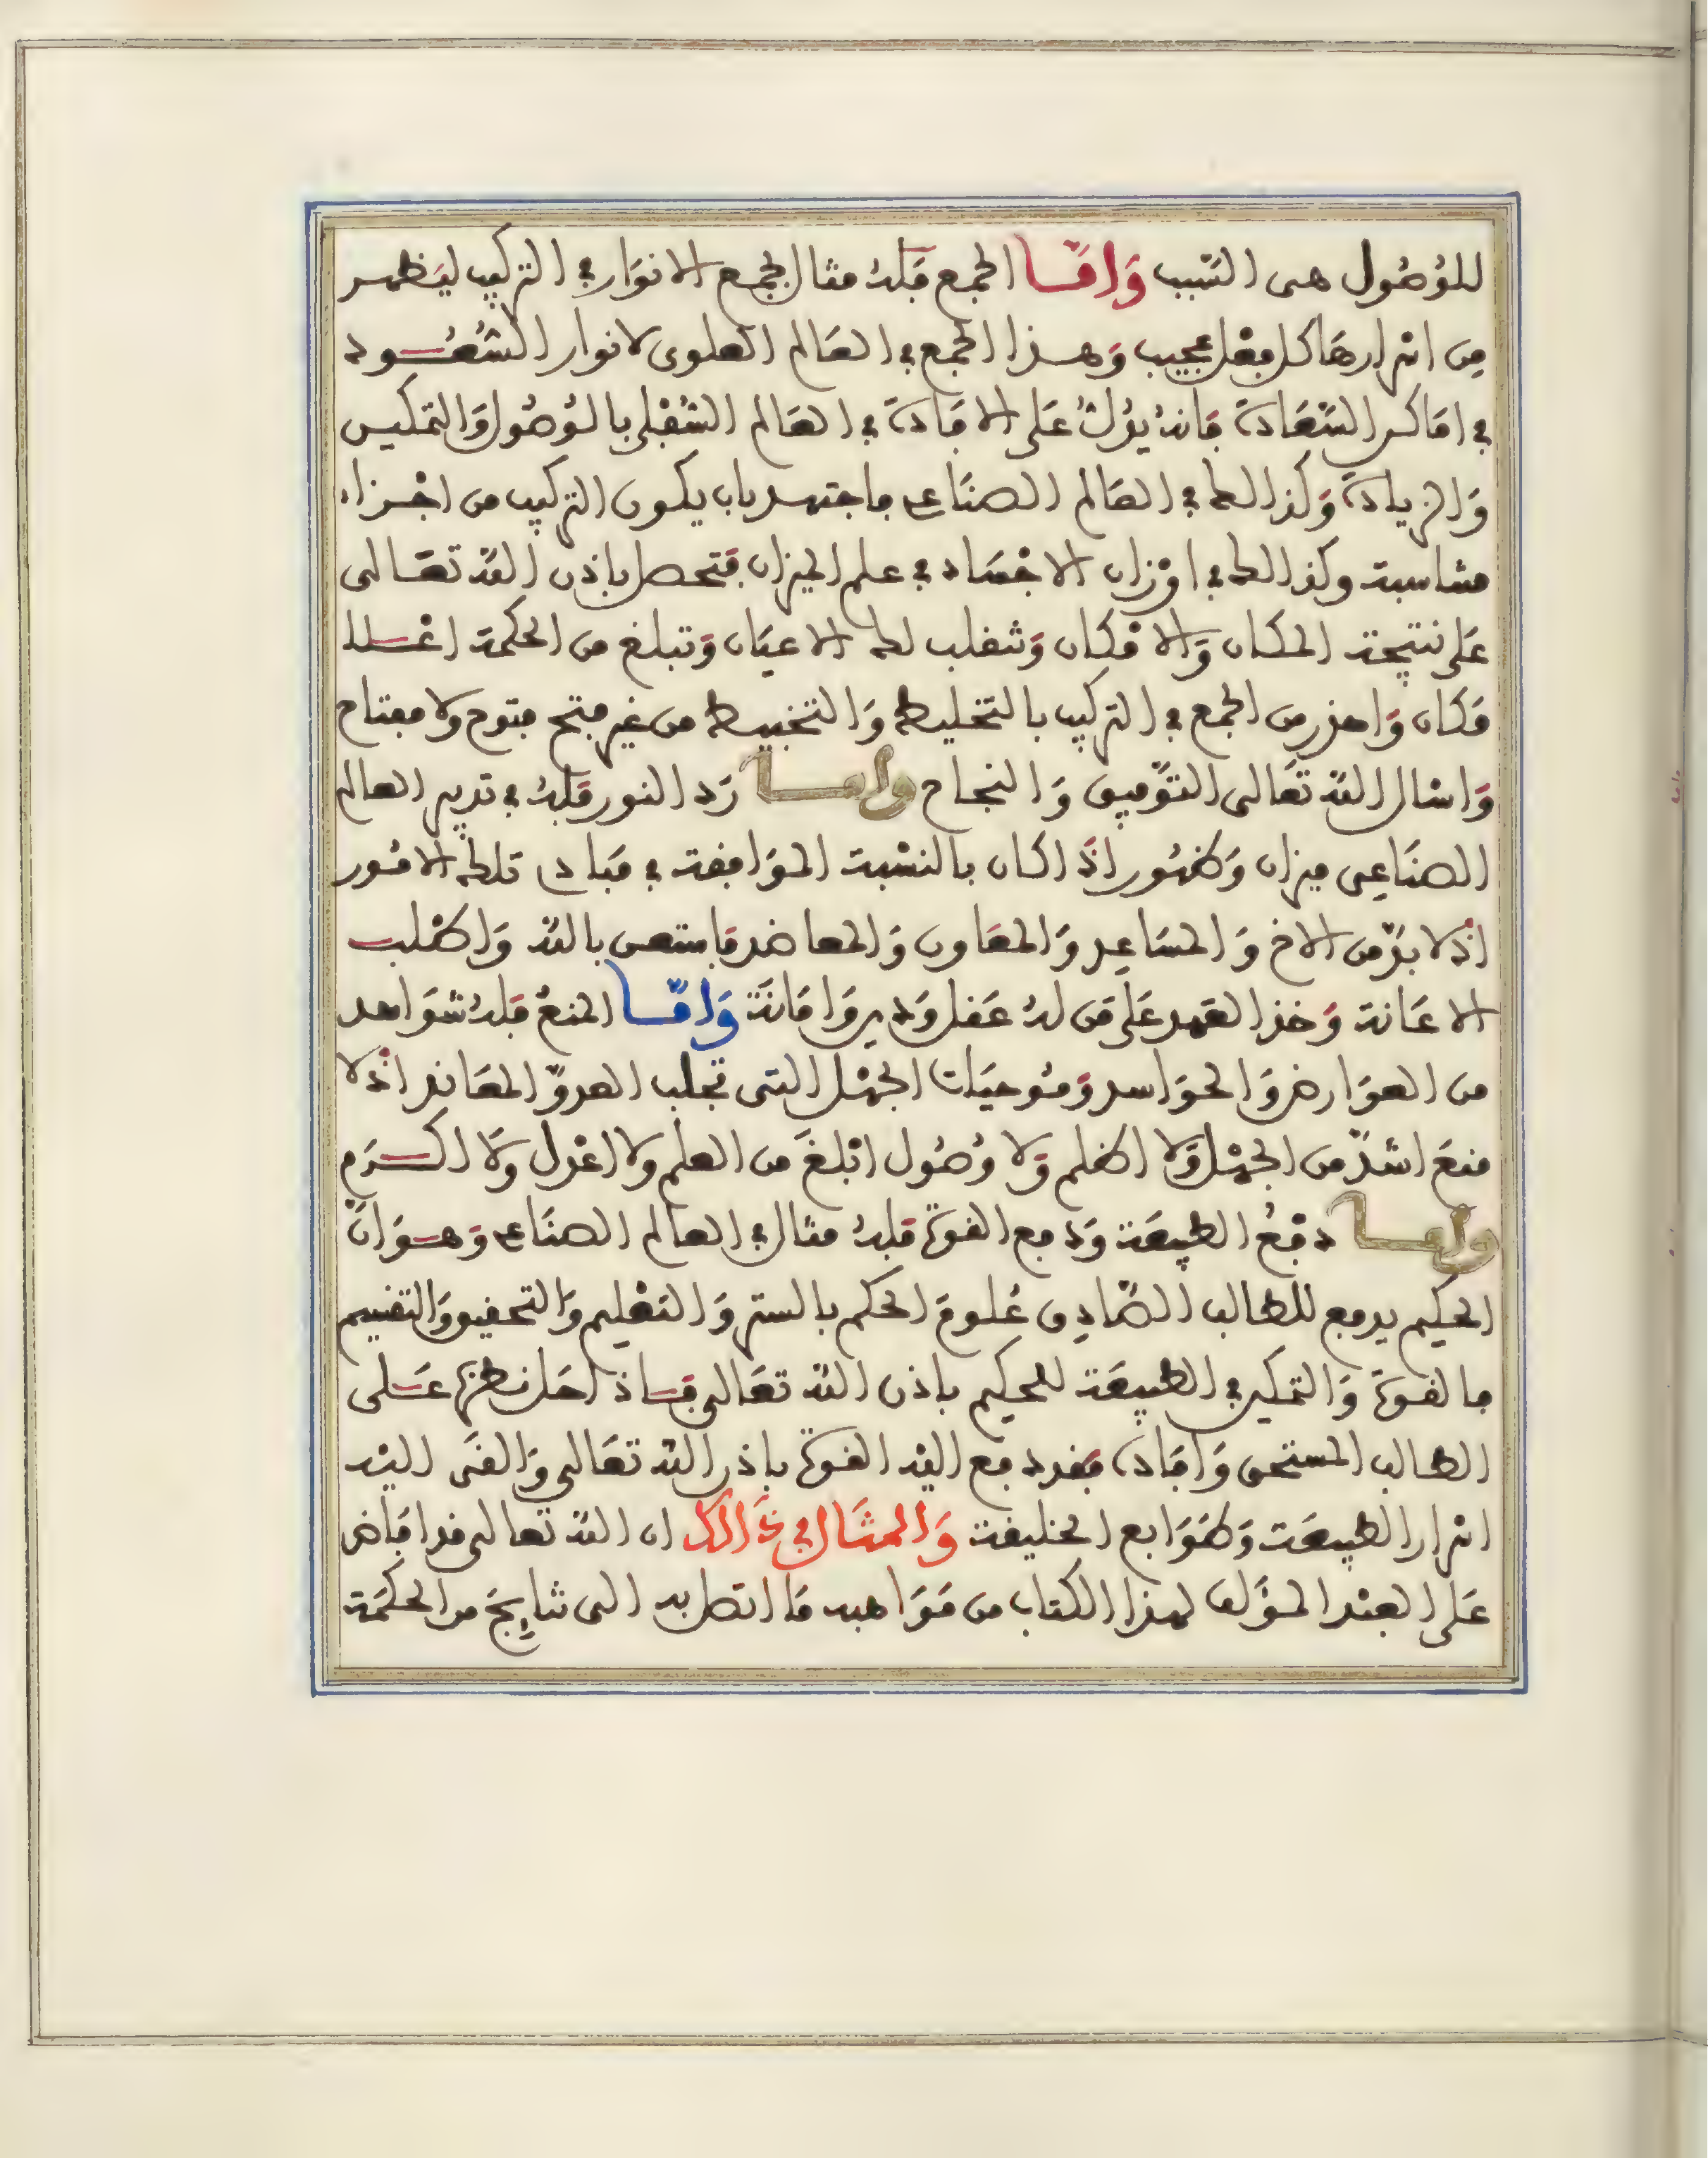 للوُصُول هى السّبب وَامّا الجمع فَلهُ مثال بجمع الانوَار في التركيب ليَظهر
مِن اسْرارهَا كل فِعْل عجيب وَهذا الجمع في العَالم العلوى لانوار السُّعُود
في اماكن السَّعَادة فانهُ يؤلُ عَلى الافَادة في العَالم السُّفْلى بالوُصُول وَالتمكين
وَالزيادة وَكذالك في العَالم الصنَاعى فاجتهد بان يكون التركيب من اجْزاء
مناسبة وكذالك في اوْزان الاجْسَاد في علم الميزان فتحصل باذن الله تعَالى
عَلى نتيجة المكان وَالامْكان وَتنقلب لك الاعيَان وَتبلغ من الحكمة اعْلا
مَكان وَاحذر من الجمع في التركيب بالتخليط وَالتخبيط من غير فتح فتوح ولا مفتاح
وَاسْال الله تعَالى التوْفيق وَالنجاح واما رَد النور فلهُ في تدبير العالم
الصنَاعِى ميزان وَظهُور اذَا كان بالنسْبة الموَافقة في مَبادى تلك الامُور
اذْ لا بدّ من الاخ وَالمسَاعِد وَالمعَاون وَالمعاضد فاستعن بالله وَاطْلب
الاعَانة وَخذ العَهد عَلى مَن لهُ عَقل وَدين وَامَانَة وَامّا المنعُ فلهُ شوَاهد
من العوَارض وَالحوَاسد وَمُوحيَات الجهْل التى تجلب العدوّ المعَاند اذْ لا
منعَ اشدّ من الجهْل وَلا اظلم وَلا وُصُول ابْلغَ من العلم ولا اعْدل وَلا اكرَم
واما دفْعُ الطبيعَة وَدفع القوة فلهُ مثال في العالم الصنَاعى وَهوَ انّ
الحكيم يدفع للطالب الصَّادِق عُلومَ الحكم بالستر وَالتعْليم وَالتحقيق وَالتفهيم
فالقوة وَالتمكين في الطبيعَة للحكيم باذن الله تعَالى فاذا احَل نظرَه عَلى
الطالب المستحق وَافَادَه فقد دفع اليْه القوة باذن الله تعَالى وَالقَى اليْه
اسْرار الطبيعَة وَطوَابع الخليقة وَالمثَال في ذَالك ان الله تعالى قد افَاض
عَلى العبْد المؤَلف لهذا الكتاب من مَوَاهبه مَا اتصل به الى نتايج من الحكمَة